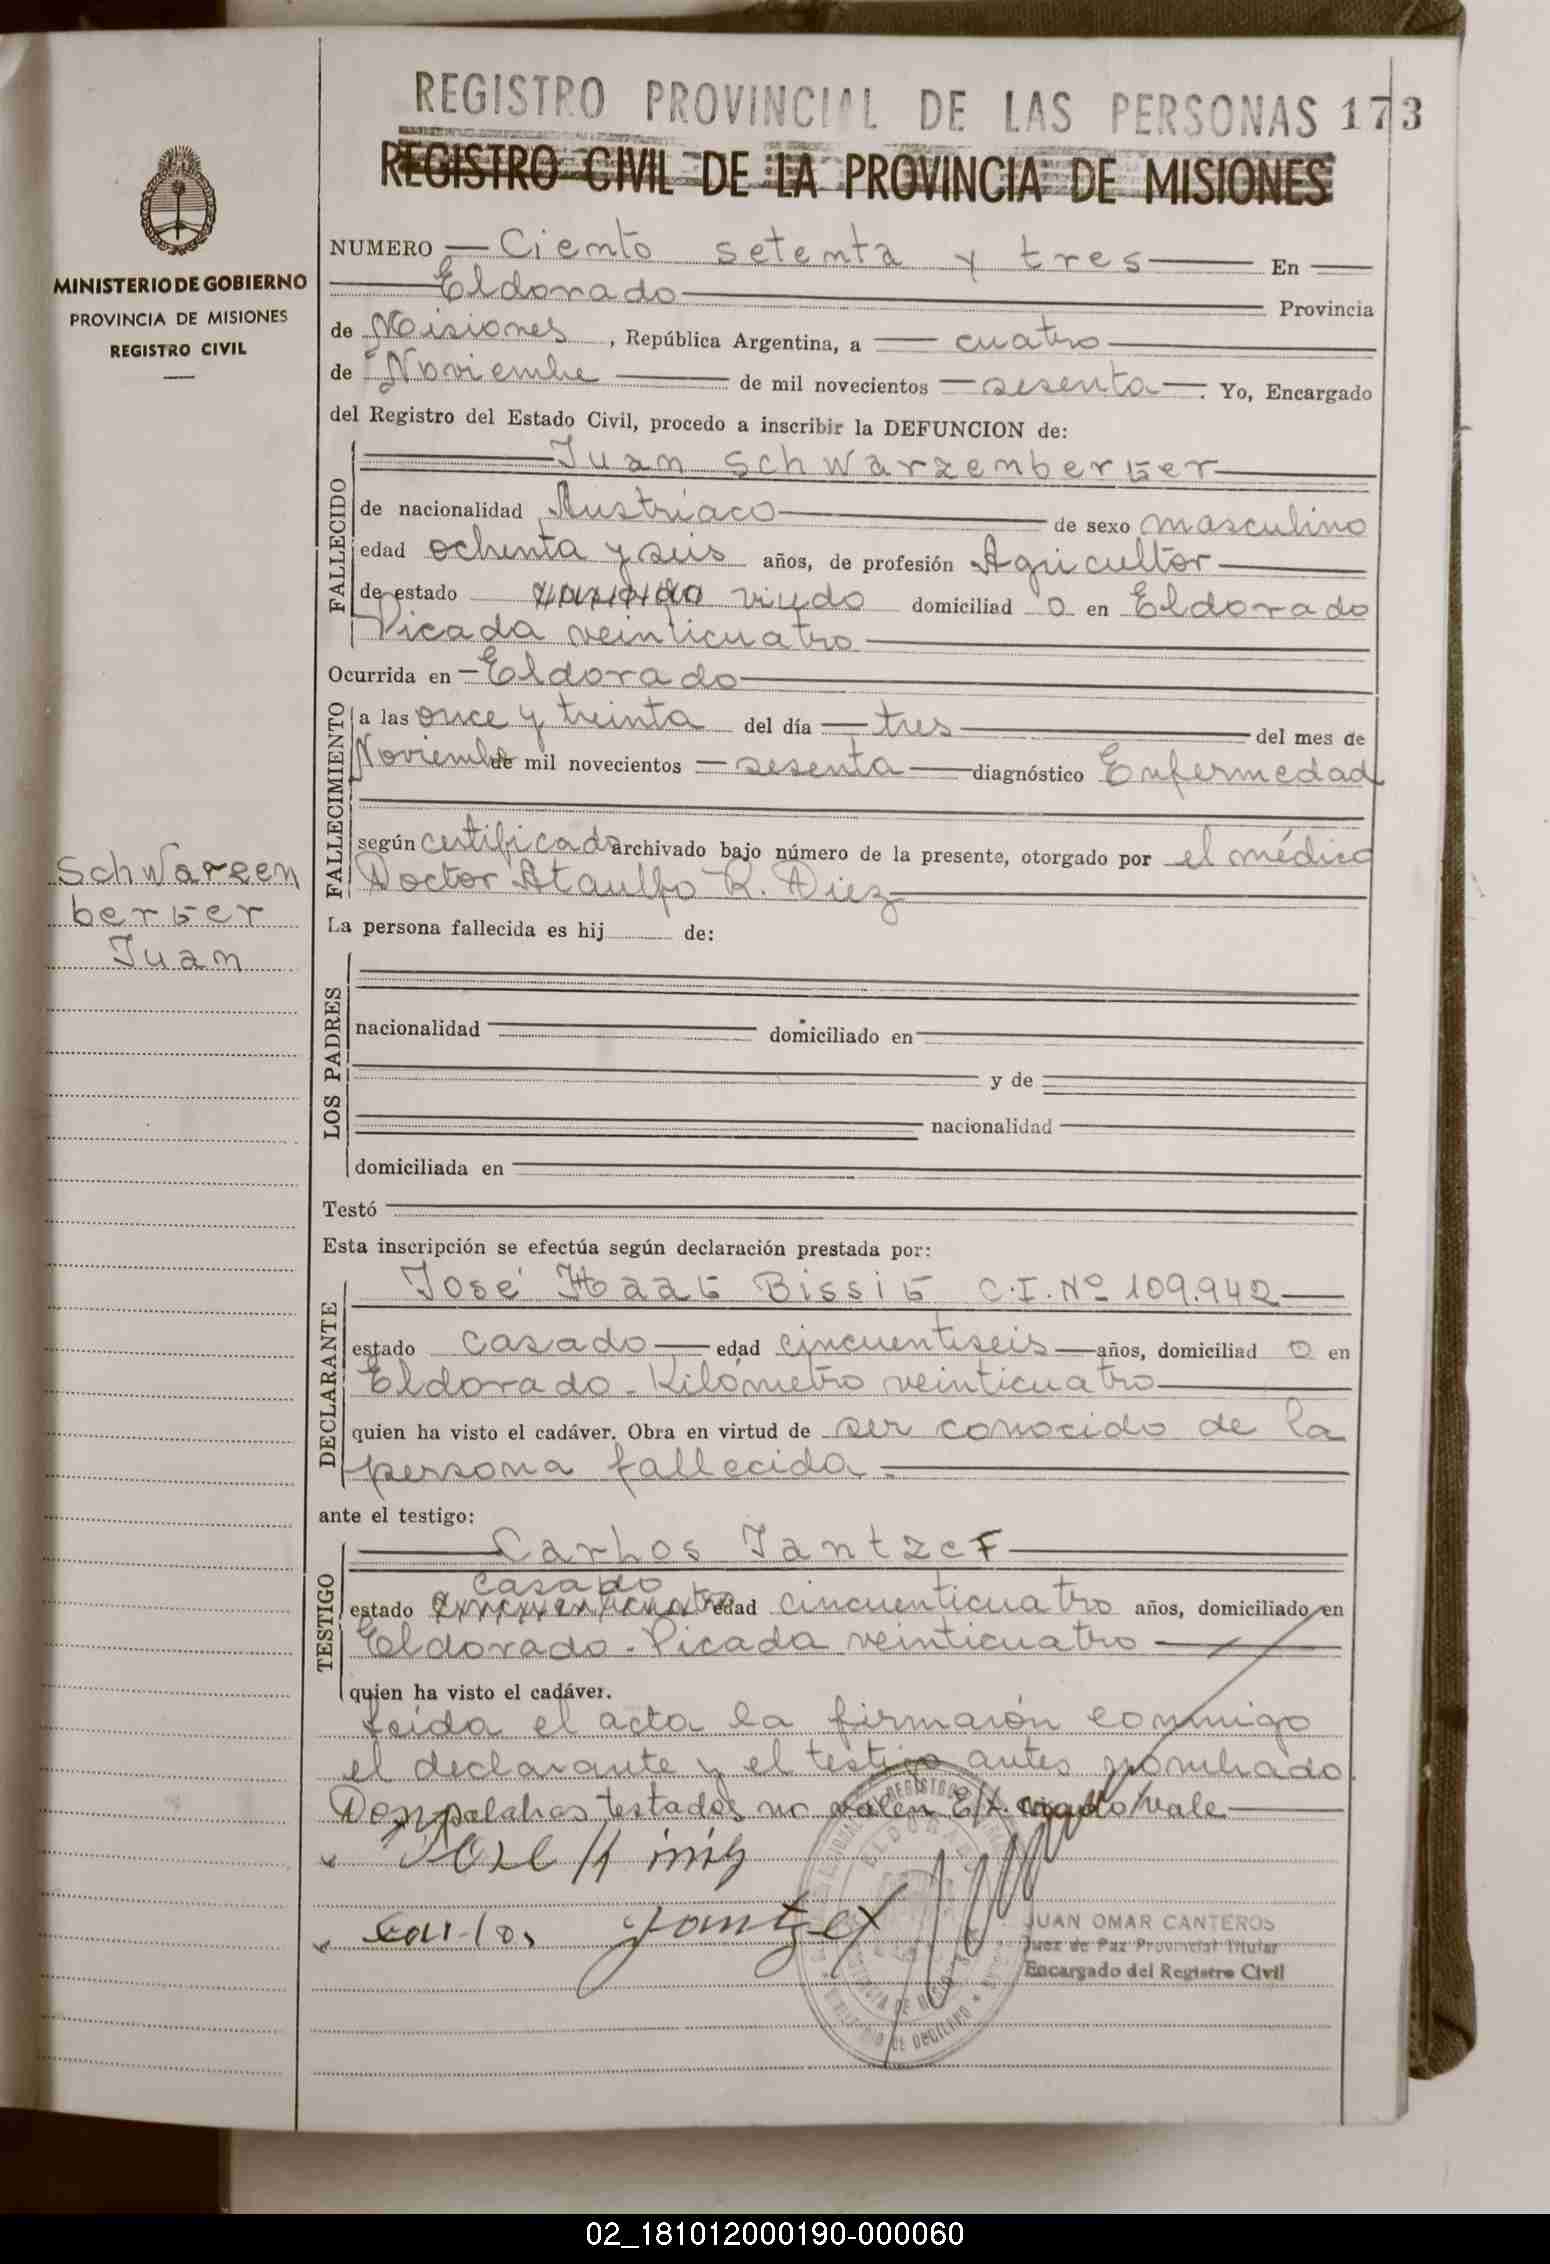 REGISTRO PROVINCIAL DE LAS PERSONAS 173
REGISTRO CIVIL DE LA PROVINCIA DE MISIONES
MINISTERIO DE GOBIERNO
PROVINCIA DE MISIONES
REGISTRO CIVIL
NUMERO Ciento setenta y tres En
Eldorado Provincia
de Misiones, República Argentina, a cuatro
de Noviembre de mil novecientos sesenta. Yo, Encargado
del Registro del Estado Civil, procedo a inscribir la DEFUNCION de:
FALLECIDO
Juan Schwarzenberger
de nacionalidad Austríaco de sexo masculino
edad ochenta y seis años, de profesión Agricultor
de estado viudo domiciliad o en Eldorado
Picada veinticuatro
Ocurrida en Eldorado
FALLECIMIENTO
a las once y treinta del día tres del mes de
Noviembre de mil novecientos sesenta diagnóstico Enfermedad
según certificado archivado bajo número de la presente, otorgado por el médico
Doctor Ataulfo R. Diez
Schwarzen
berger
Juan
La persona fallecida es hij de:
LOS PADRES
nacionalidad domiciliado en
y de
nacionalidad
domiciliada en
Testó
Esta inscripción se efectúa según declaración prestada por:
DECLARANTE
José Haag Bissig C.I. Nº 109.942
estado casado edad cincuentiseis años, domiciliad o en
Eldorado - Kilómetro veinticuatro
quien ha visto el cadáver. Obra en virtud de ser conocido de la
persona fallecida.
ante el testigo:
TESTIGO
Carlos Jantzef
casado
estado edad cincuenticuatro años, domiciliado en
Eldorado - Picada veinticuatro
quien ha visto el cadáver.
Leída el acta la firmaron conmigo
el declarante y el testigo antes nombrado.
Dos palabras testados no valen E/L casado/vale
Carlos Jantzef
ELDORADO
JUAN OMAR CANTEROS
Juez de Paz Provincial Titular
Encargado del Registro Civil
02_181012000190-000060